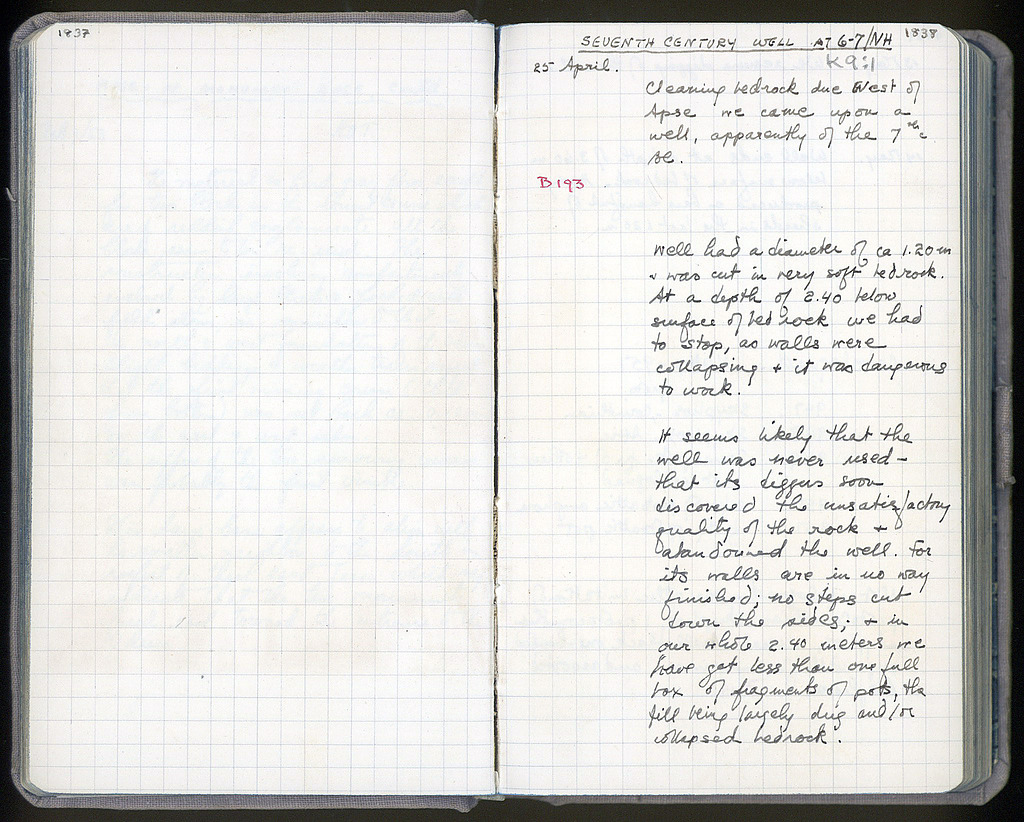 1837
1838
SEVENTH CENTURY WELL AT 6-7/NH
K 9:1
25 April.
Cleaning bedrock due West of
Apse we came upon a
well, apparently of the 7th c
B 193
Well had a diameter of ca 1.20 m
+ was cut in very soft bedrock.
At a depth of 2.40 below
surface of bedrock we had
to stop, as walls were
collapsing + it was dangerous
to work.
It seems likely that the
well was never used –
that its diggers soon
discovered the unsatisfactory
quality of the rock +
abandonned the well. For
its walls are in no way
finished; no steps cut
down the sides; + in
our whole 2.40 meters we
have got less than one full
box of fragments of pots, the
fill being largely dug and/or
collapsed bedrock.